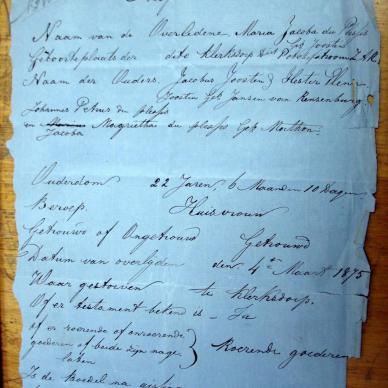 Naam van de Overledene Maria Jacoba du Plessis
Geb Joosten
Geboorteplaats der dito Klerksdorp Dist Potchefstroom Z.A.R.
Naam der Ouders. Jacobus Joosten & Hester
Joosten Geb Jansen van Rensenburg
Johannes Petrus du plessis
en Magrietha du plessis Geb
Jacoba
Ouderdom 22 Jaren 6 Maanden 10 Dagen
Beroep. Huisvrouw
Getrouwd of Ongetrouwd Getrouwd
Datum van overlyden den 4de Maart 1875
Waar gestorven te Klerksdorp.
Of er testament bekend is - Ja
of er roerende of onroerende
goederen of beide zijn nage- Roerende goederen
laten
Is de Boedel na